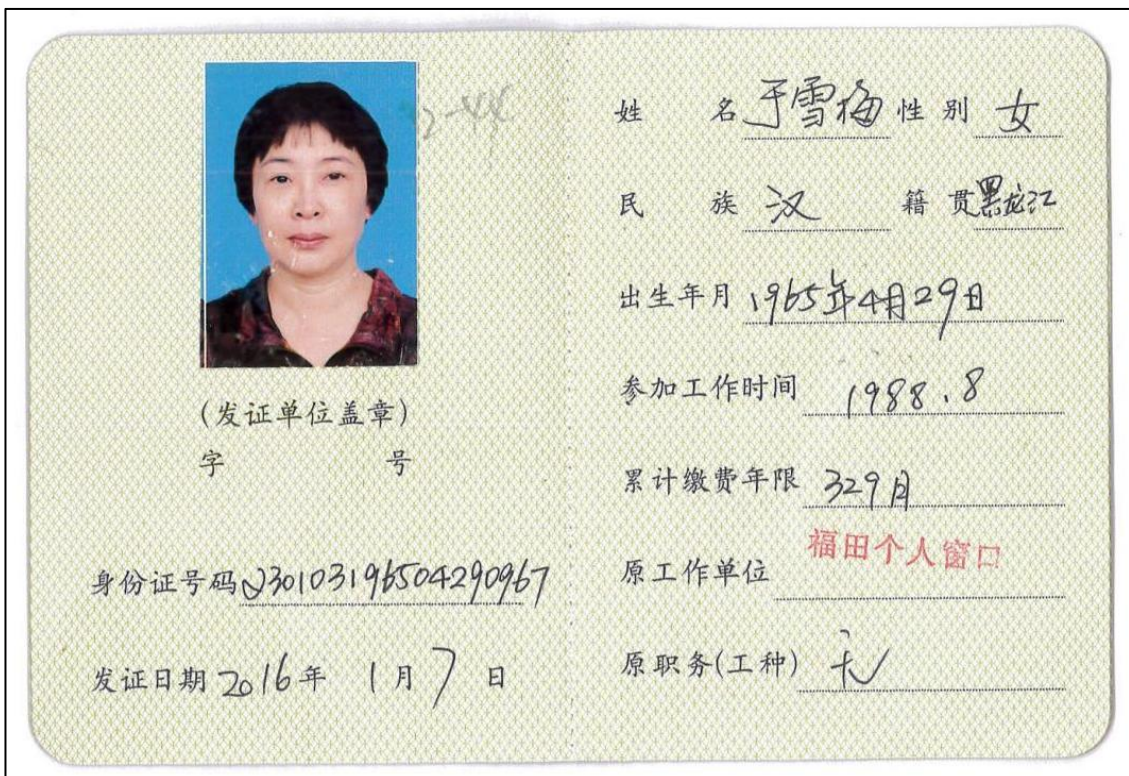 2-44
(发证单位盖章)
字 号
身份证号码 230103196504290967
发证日期 2016年 1月 7 日
姓 名 于雪梅 性别 女
民 族 汉 籍贯 黑龙江
出生年月 1965年4月29日
参加工作时间 1988.8
累计缴费年限 329月
原工作单位 福田个人窗口
原职务(工种) 无